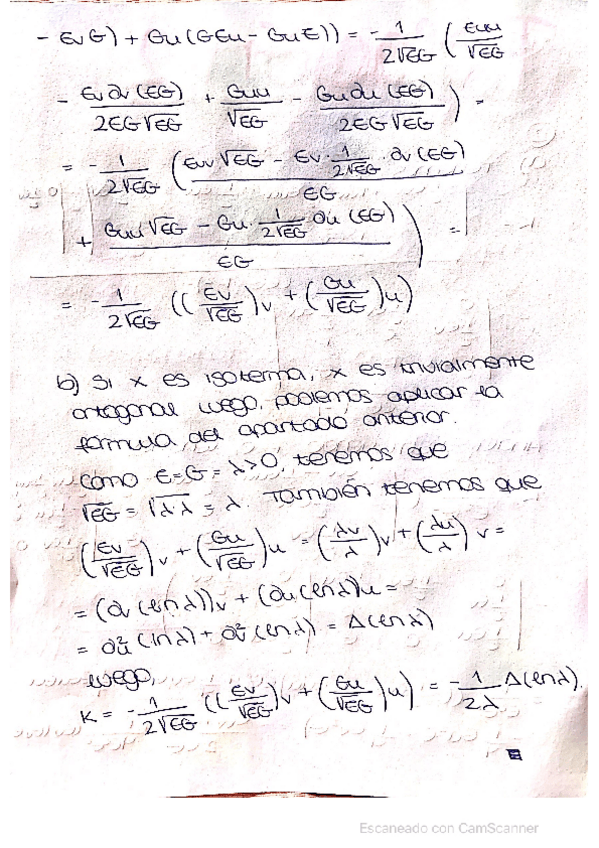 - EvG) + Gu(GEu - GuE)) = - 1/(2√EG) ( Euu/√EG
- Ev∂v(EG)/(2EG√EG) + Guu/√EG - Gu∂u(EG)/(2EG√EG) ) =
= - 1/(2√EG) ( (Evv√EG - Ev · 1/(2√EG) · ∂v(EG))/EG
+ (Guu√EG - Gu · 1/(2√EG) ∂u(EG))/EG ) =
= - 1/(2√EG) ((Ev/√EG)v + (Gu/√EG)u)
b) Si x es isoterma, x es trivialmente
ortogonal luego, podemos aplicar la
fórmula del apartado anterior.
Como E=G=λ>0, tenemos que
√EG = √λλ = λ. También tenemos que
(Ev/√EG)v + (Gu/√EG)u = (λv/λ)v + (λu/λ)v =
= (∂v(lnλ))v + (∂u(lnλ))u =
= ∂²u(lnλ) + ∂²v(lnλ) = Δ(lnλ)
Luego,
K = - 1/(2√EG) ((Ev/√EG)v + (Gu/√EG)u) = - 1/(2λ) Δ(lnλ).
Escaneado con CamScanner